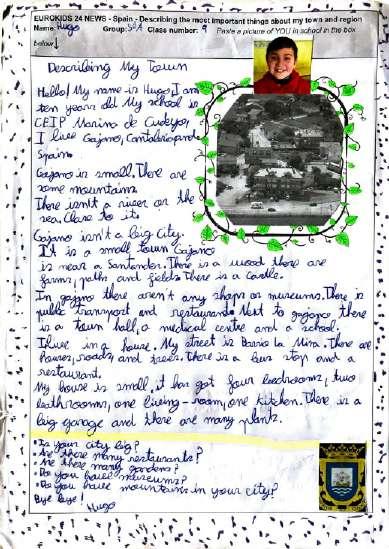 EUROKIDS 24 NEWS - Spain - Describing the most important things about my town and region
Name: Hugo Group: 5ºA Class number: 9 Paste a picture of YOU in school in the box
below↓
Describing My Town
Hello! My name is Hugo I am
ten years old My school is
CEIP Marina de Cudeyo,
I live Gajano, Cantabria and
Spain
Gajano is small. There are
some mountains
There isn't a river or the
sea. Close to it.
Gajano isn't a big city.
It is a small town Gajano
is near a Santander. There is a wood there are
farms, path, and fields There is a Castle.
In gajano there aren't any shops or museums. There is
public transport and restaurant. Next to gajano there
is a town hall, a medical centre and a school.
I live in a house. My street is Barrio La Mina. There are
houses, roads, and trees. There is a bus stop and a
restaurant.
My house is small, it has got four bedrooms, two
bathrooms, one living-room, one kitchen. There is a
big garage and there are many plants.
• Is your city big?
• Are there many restaurants?
• Are there many gardens?
• Do you have museums?
• Do you have mountains in your city?
Bye bye!
Hugo